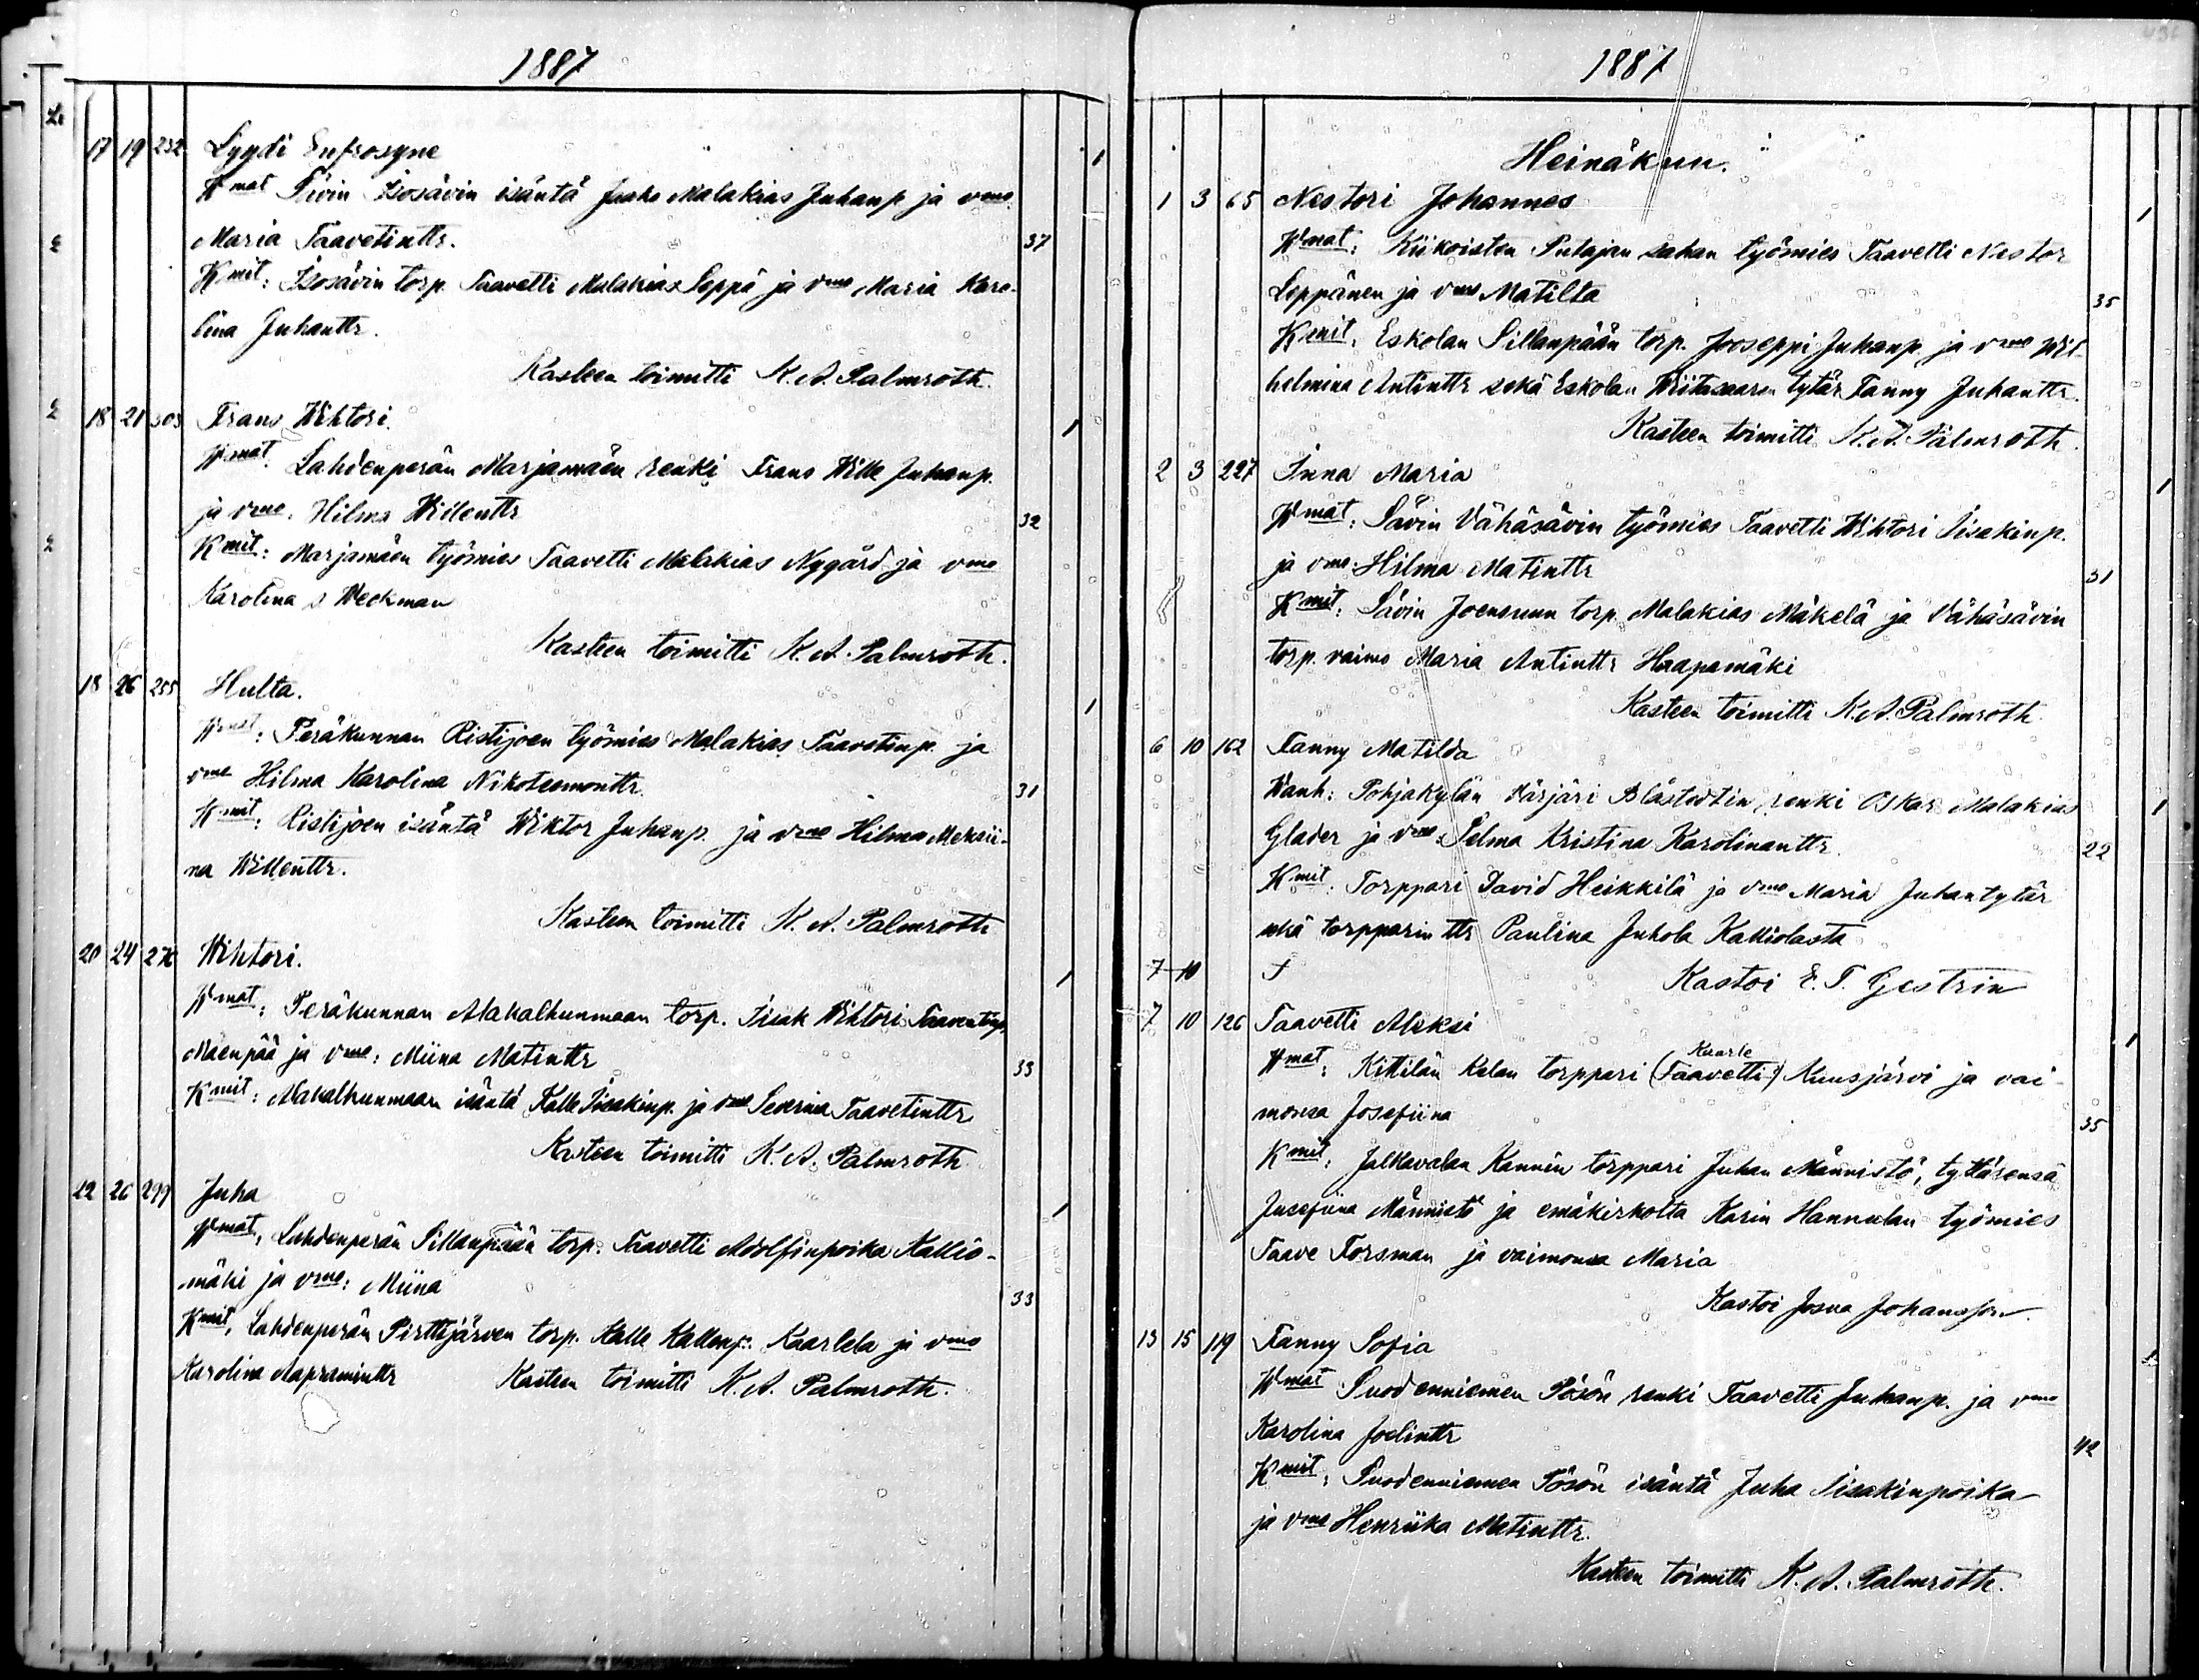 1887
17 19 232 Lyydi Eufrosyne 1
Wmat Sävin Isosävin isäntä Jaako Malakias Juhanp ja vmo
Maria Taavetinttr. 37
Kmit: Isosävin torp. Taavetti Malakias Seppä ja vmo Maria Karo-
lina Juhanttr.
Kasteen toimitti K. A. Palmroth.
18 21 303 Frans Wihtori. 1
Wmat. Lahdenperän Marjamäen renki Frans Wille Juhanp.
ja vmo. Hilma Willenttr 32
Kmit: Marjamäen työmies Taavetti Malakias Nygård ja vmo
Karolina s Weckman
Kasteen toimitti K. A. Palmroth.
18 26 255 Hulta. 1
Wmat: Peräkunnan Ristijoen työmies Malakias Taavetinp. ja
vmo Hilma Karolina Nikoteemonttr. 31
Kmit: Ristijoen isäntä Wiktor Juhanp. ja vmo Hilma Meksii-
na Willenttr.
Kasteen toimitti K. A. Palmroth
20 24 276 Wihtori. 1
Wmat: Peräkunnan Alahalhunmaan torp. Iisak Wihtori Taavetinp.
Mäenpää ja vmo: Miina Matinttr 33
Kmit: Alahalhunmaan isäntä Kalle Iisakinp. ja vmo Severina Taavetinttr
Kasteen toimitti K. A. Palmroth
22 26 299 Juha 1
Wmat, Lahdenperän Sillanpään torp. Taavetti Adolfinpoika Kallio-
mäki ja vmo: Miina 33
Kmit, Lahdenperän Pirttijärven torp. Kalle Kallenp: Kaarlela ja vmo
Karolina Aapraminttr Kasteen toimitti K. A. Palmroth.
1887
Heinäkuu.
1 3 65 Nestori Johannes 1
Wmat: Kiikoisten Putajan sahan työmies Taavetti Nestor
Leppänen ja vmo Matilta 35
Kmit, Eskolan Sillanpään torp. Jooseppi Juhanp, ja vmo Wil-
helmina Antinttr sekä Eskolan Wiitasaaren tytär Fanny Juhanttr.
Kasteen toimitti K. A. Palmroth.
2 3 227 Inna Maria 1
Wmat: Sävin Vähäsävin työmies Taavetti Wihtori Iisakinp.
ja vmo: Hilma Matinttr 31
Kmit: Sävin Joensuun torp. Malakias Mäkelä ja Vähäsävin
torp. vaimo Maria Antinttr Haapamäki
Kasteen toimitti K. A. Palmroth.
6 10 162 Fanny Matilda
Wanh: Pohjakylän Närjäri Blåstedtin renki Oskar Malakias 1
Glader ja vmo Selma Kristina Karolinanttr. 22
Kmit: Torppari David Heikkilä ja vmo Maria Juhantytär
sekä torpparin ttr Paulina Juhola Kalliolasta
7 10 Kastoi E. T. Gestrin
7 10 126 Taavetti Aleksi 1
Kaarle
Wmat: Kittilän Kalan torppari (Taavetti) Kuusjärvi ja vai-
monsa Josefiina 35
Kmit: Jalkavalan Kannin torppari Juhan Männistö, tyttärensä
Josefiina Männistö ja emäkirkolta Karin Hannulan työmies
Taave Forsman ja vaimonsa Maria
Kastoi Josua Johansson.
13 15 119 Fanny Sofia 1
Wmat Suodenniemen Pösön renki Taavetti Juhanp. ja vmo
Karolina Joelinttr 42
Kmit: Suodenniemen Pösön isäntä Juha Iisakinpoika
ja vmo Henriika Matinttr.
Kasteen toimitti K. A. Palmroth.